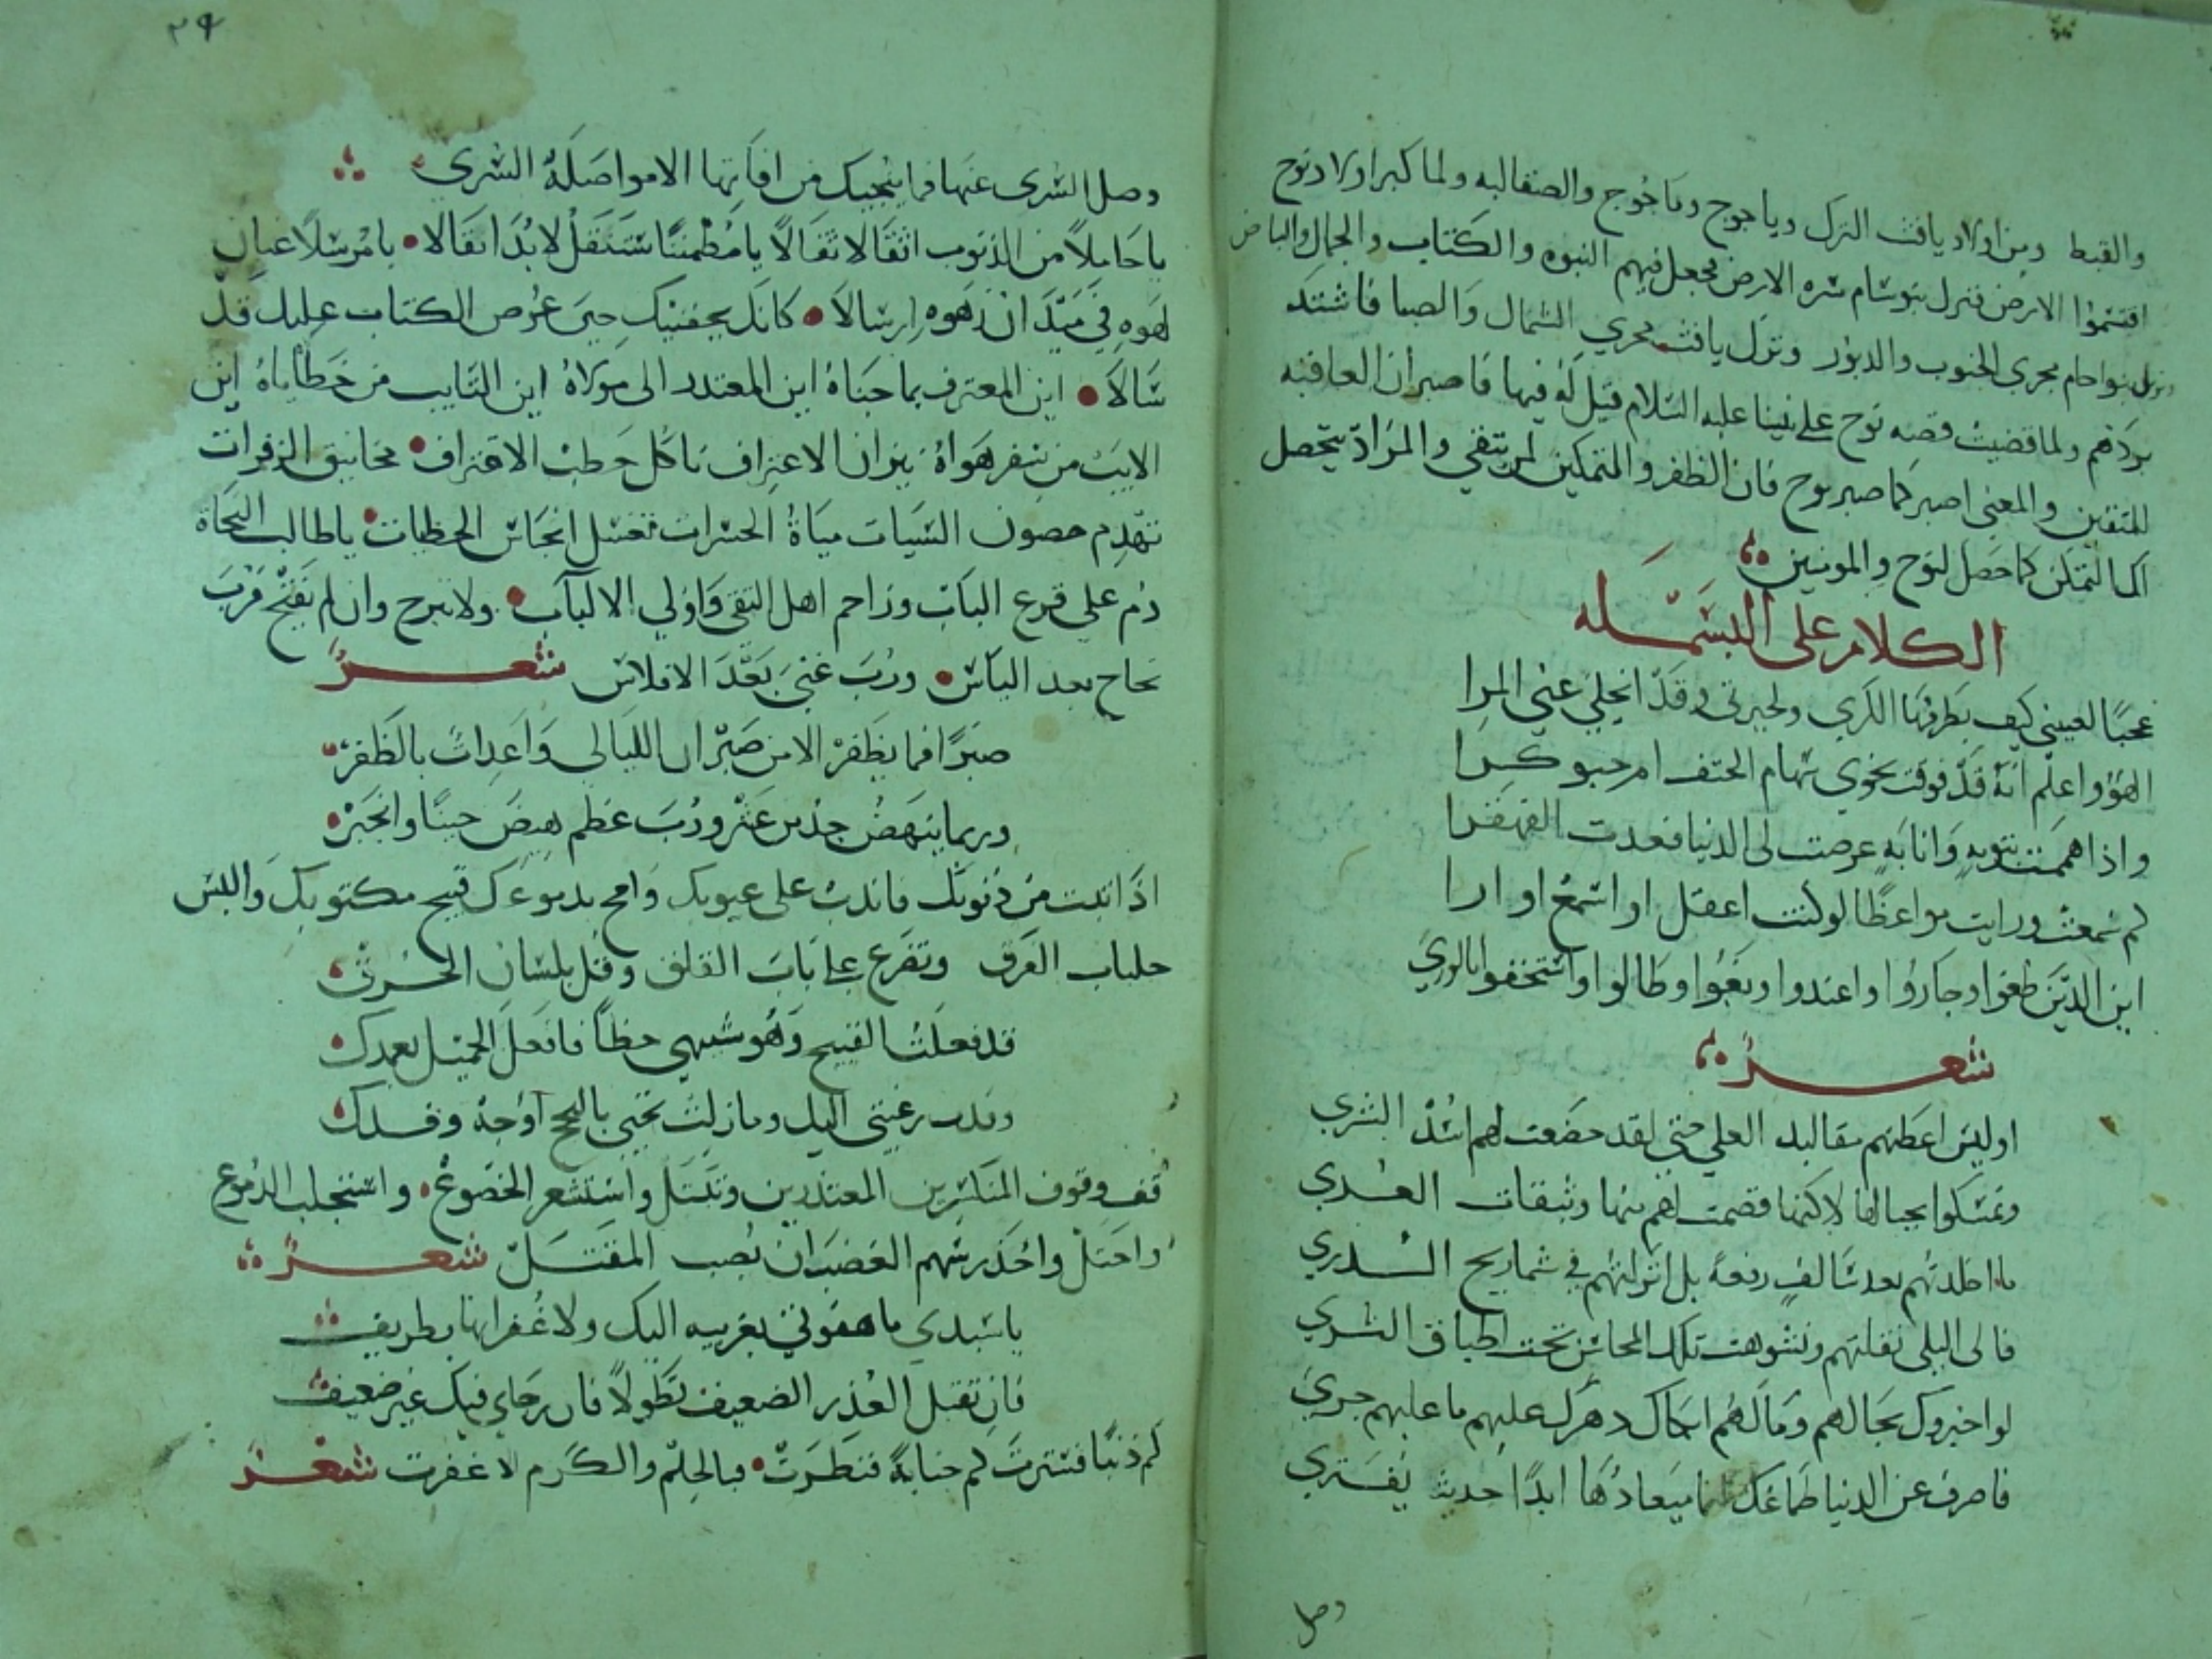 والقبط ومن اولاد يافث الترك وياجوج وماجوج والصقالبه ولما كبر اولاد نوح
اقتسموا الارض فنزل بنو سام سره الارض فجعل فيهم النبوه والكتاب والجمال والبياض
ونزل بنو احام مجري الجنوب والدبور ونزل يافث مجري الشمال والصبا فاشتد
بردهم ولما قضيت قصه نوح على نبينا عليه السلام قيل له فيها فاصبر ان العاقبه
للمتقين والمعنى اصبر كما صبر نوح فان الظفر والتمكين لمن يتقي والمراد يتحصل
لك التمكن كما حصل لنوح والمومنين
الكلام على البسمله
عجبًا لعيني كيف يطرقها الكري ولحيرتي وقد انجلي عني المرا
الهو واعلم انه قد فوقت نحوي سهام الحتف ام حبو كرا
واذا هممت بتوبه وانابه عرضت لى الدنيا فعدت القهقرا
كم سمعت ورايت مواعظًا لو كنت اعقل او اسمع او ارا
اين الذين طغوا وجاروا واعتدوا وبغوا وطالوا واستخفوا بالوري
شعر
اوليس اعطتهم مقاليد العلي حتى لقد خضعت لهم اسد الشري
وتمسكوا بحبالها لاكنها فصمت لهم منها وثيقات العري
ما اخلدتهم بعد سالف رفعة بل انزلتهم في شماريخ الذري
فالى البلى نقلتهم وتشوهت تلك المحاسن تحت اطباق الثري
لو اخبروك بحالهم ومالهم ابكاك دهرك عليهم ما عليهم جري
فاصرف عن الدنيا طماعك انما ميعادها ابدًا حديث يفتري
وصل
٢٩
وصل السري عنها فما ينجيك من افاتها الا مواصلة السري
يا حاملاً من الذنوب اثقالا ثقالاً يا مطمئنًا ستنقل لا بد انتقالا يا مرسلاً عنان
لهوه في ميدان زهوه ارسالا كانك بجفنيك حين عرض الكتاب عليك قد
سالا اين المعترف بما جناه اين المعتذر الى مولاه اين التايب من خطاياه اين
الايب من سفر هواه نيران الاعتراف تاكل حطب الاقتراف مجانيق الزفرات
تهدم حصون السيات مياة الحسرات تغسل انجاس الخطيات يا طالب النجاة
دم على قرع الباب وزاحم اهل التقى واولي الالباب ولا تبرح وان لم يفتح فرب
نجاح بعد الياس ورب غني بعد الافلاس شعر
صبرًا فما يظفر الا من صبر ان الليالى واعدات بالظفر
وربما ينهض جد من عثر ورب عظم هيض حينًا وانجبر
اذا تبت من ذنوبك فاندب على عيوبك وامح بدموعك قبيح مكتوبك والبس
جلباب الفرق وتضرع على باب القلق وقل بلسان الحرق
قد فعلت القبيح وهو شبيهي خطأ فافعل الجميل بعبدك
قف وقوف المنكسرين المعتذرين وتبتل واستشعر الخضوع واستجلب الدموع
واحتل واحذر سهم الغضب ان يصب المقتل شعر
يا سيدي ما هفوتي بغريبه اليك ولا غفرانها بطريف
فان تقبل العذر الضعيف تطولاً فان رجاي فيك غير ضعيف
كم ذنبًا فسترت كم جناية فنظرت فبالحلم والكرم لا غفرت شعر